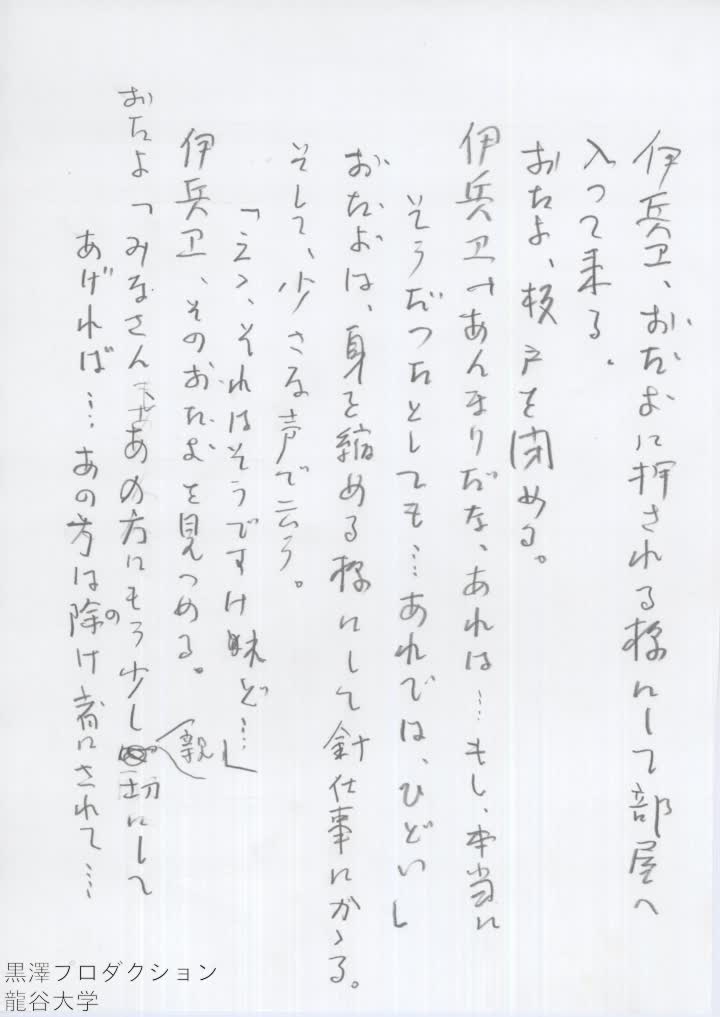 伊兵卫、おたよに押される様にして部屋へ
入って来る。
おたよ、板戸を閉める。
伊兵卫「あんまりだな、あれは…もし、本当に
そうだったとしても…あれでは、ひどい」
おたよは、身を縮める様にして針仕事にかゝる。
そして、少さな声で云う。
「えゝ、それはそうですけど…」
伊兵卫、そのおたよを見つめる。
おたよ「みなさんがあの方にもう少し親切にして
あげれば…あの方は除け者にされて…
の
黒澤プロダクション
龍谷大学